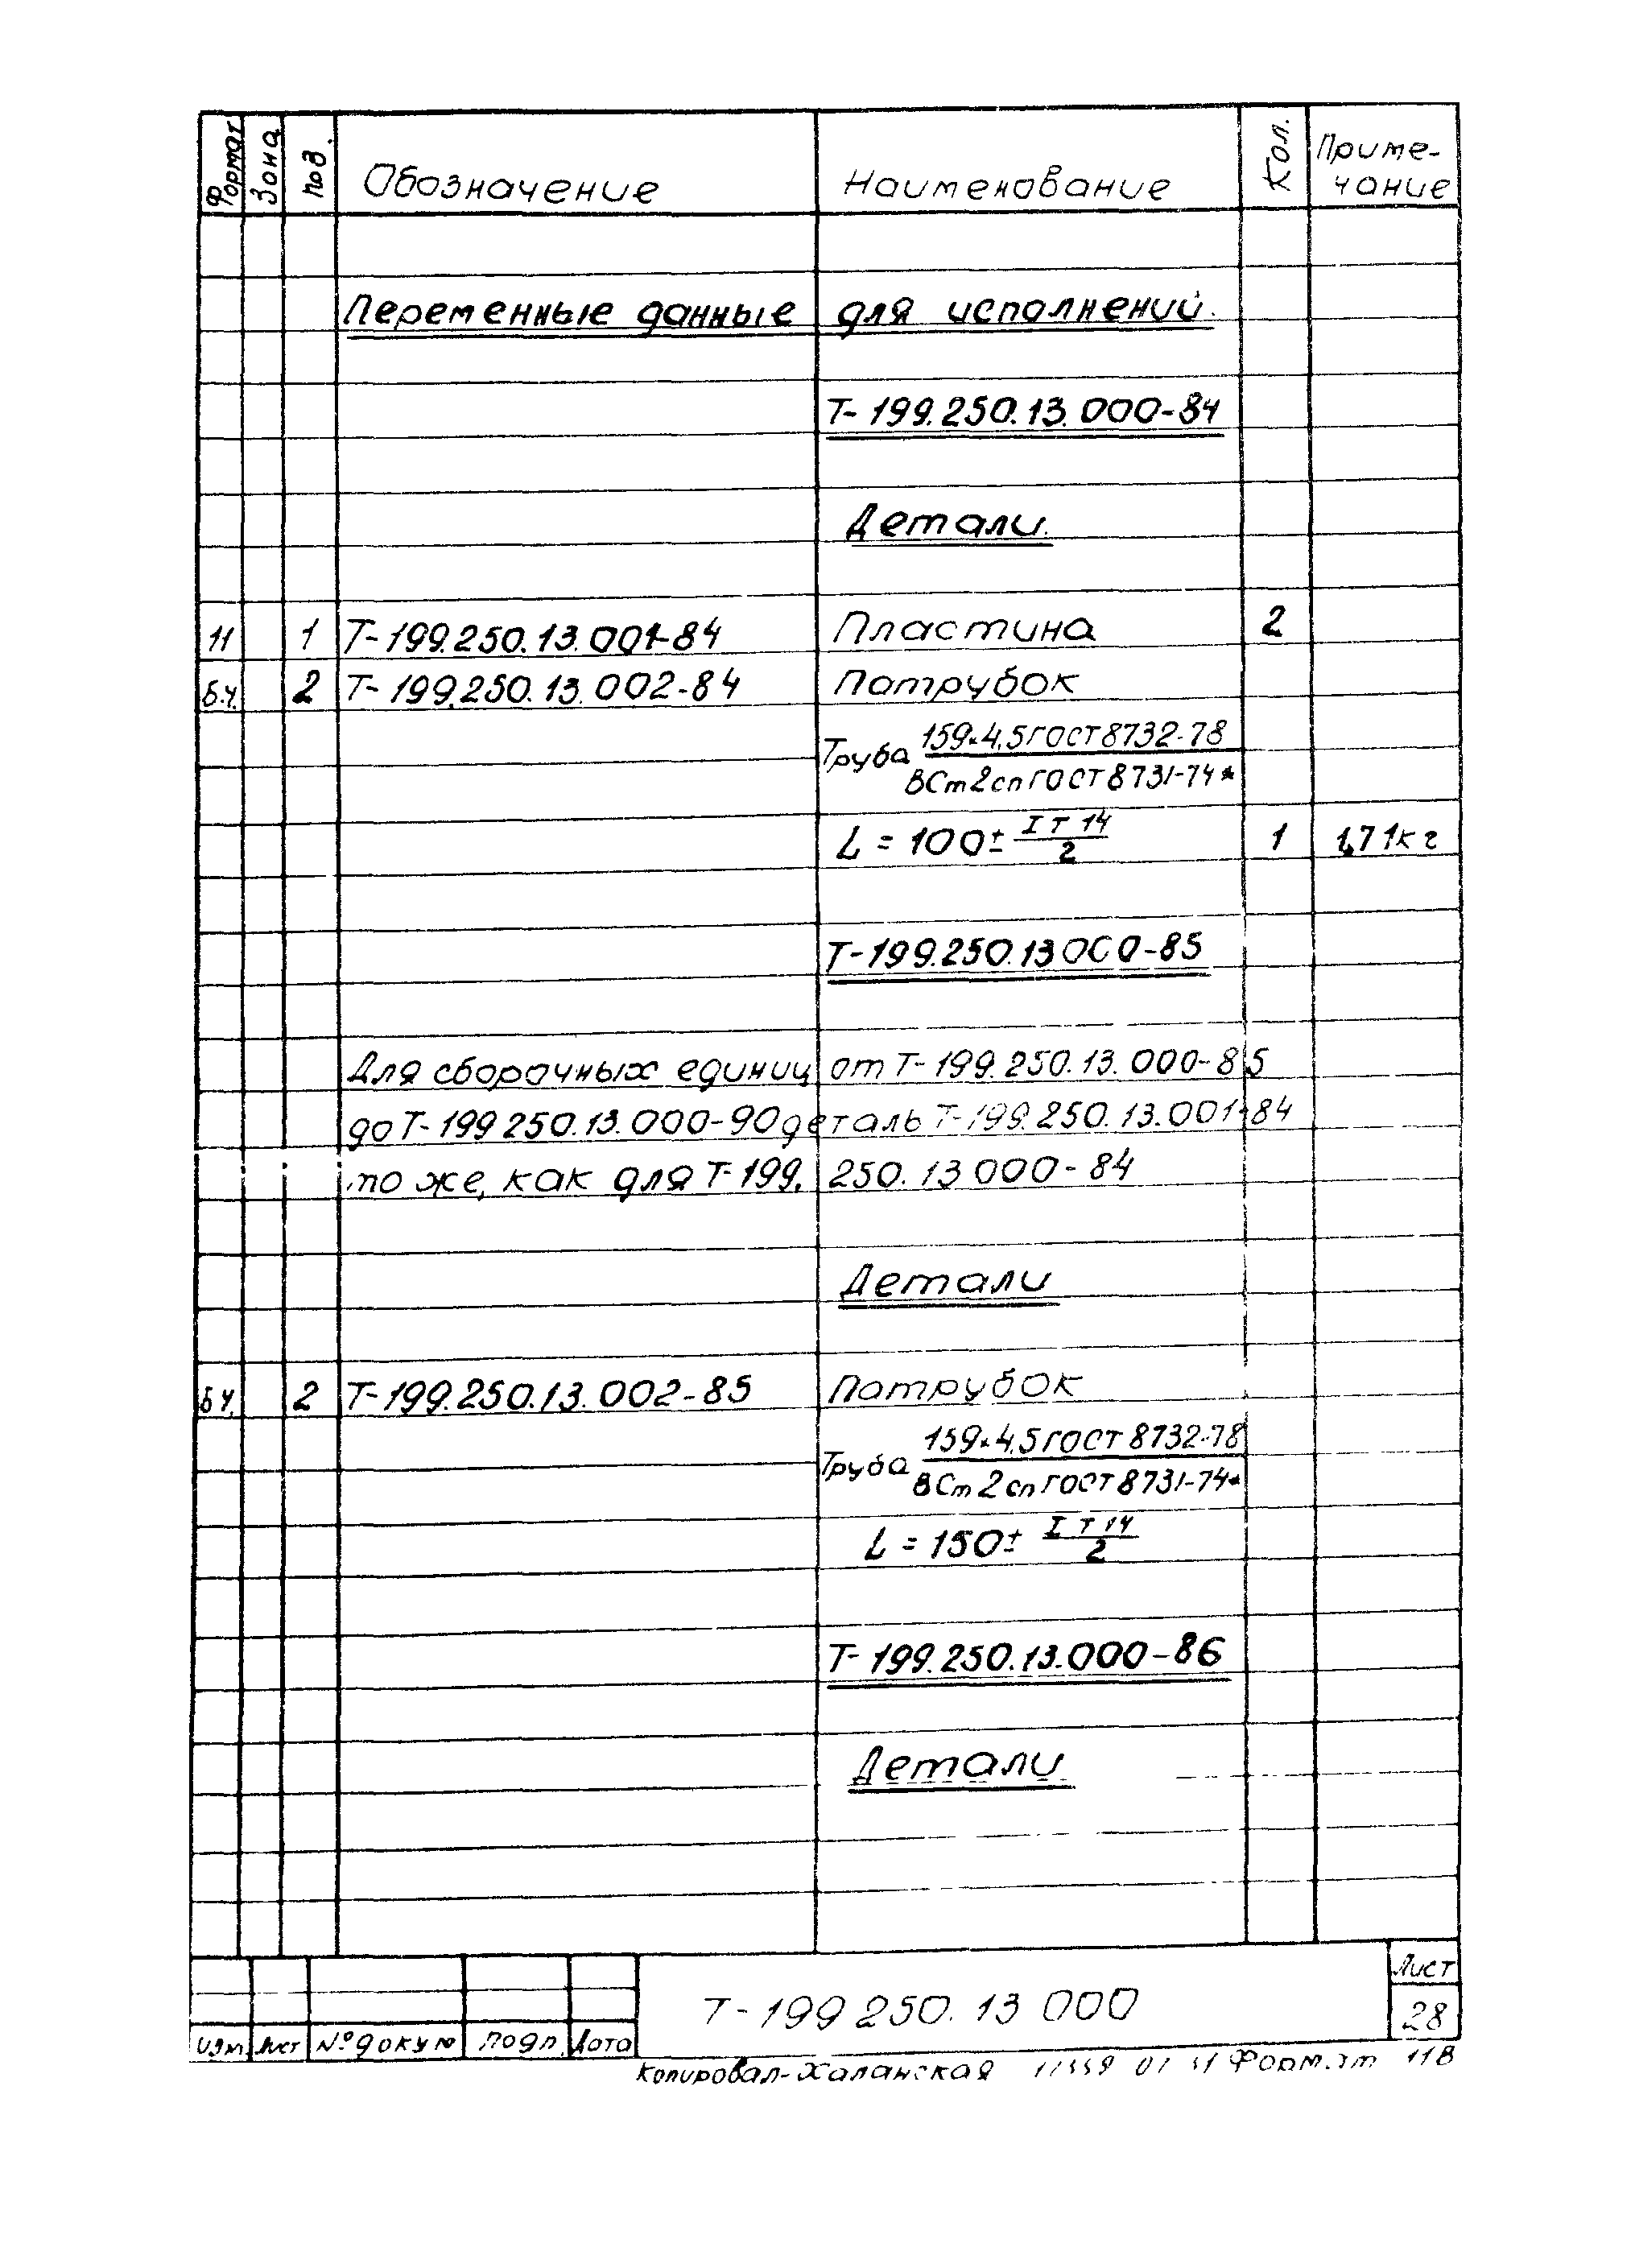 Формат Зона Поз. Обозначение Наименование Кол. Приме-
чание
Переменные данные для исполнений.
Т-199.250.13.000-84
Детали.
11 1 Т-199.250.13.001-84 Пластина 2
Б.ч. 2 Т-199.250.13.002-84 Патрубок
Труба 159×4,5 ГОСТ 8732-78
ВСт2сп ГОСТ 8731-74*
L = 100 ± IT14/2 1 1,71кг
Т-199.250.13 000-85
Для сборочных единиц от Т-199.250.13.000-85
до Т-199 250.13.000-90 деталь Т-199.250.13.001-84
то же, как для Т-199.250.13 000-84
Детали
Б ч. 2 Т-199.250.13.002-85 Патрубок
Труба 159×4,5 ГОСТ 8732-78
ВСт2сп ГОСТ 8731-74*
L = 150 ± IT14/2
Т-199.250.13.000-86
Детали
Лист
Т-199 250.13 000
28
Изм Лист № докум подп. Дата
Копировал-Халанская Формат 11В